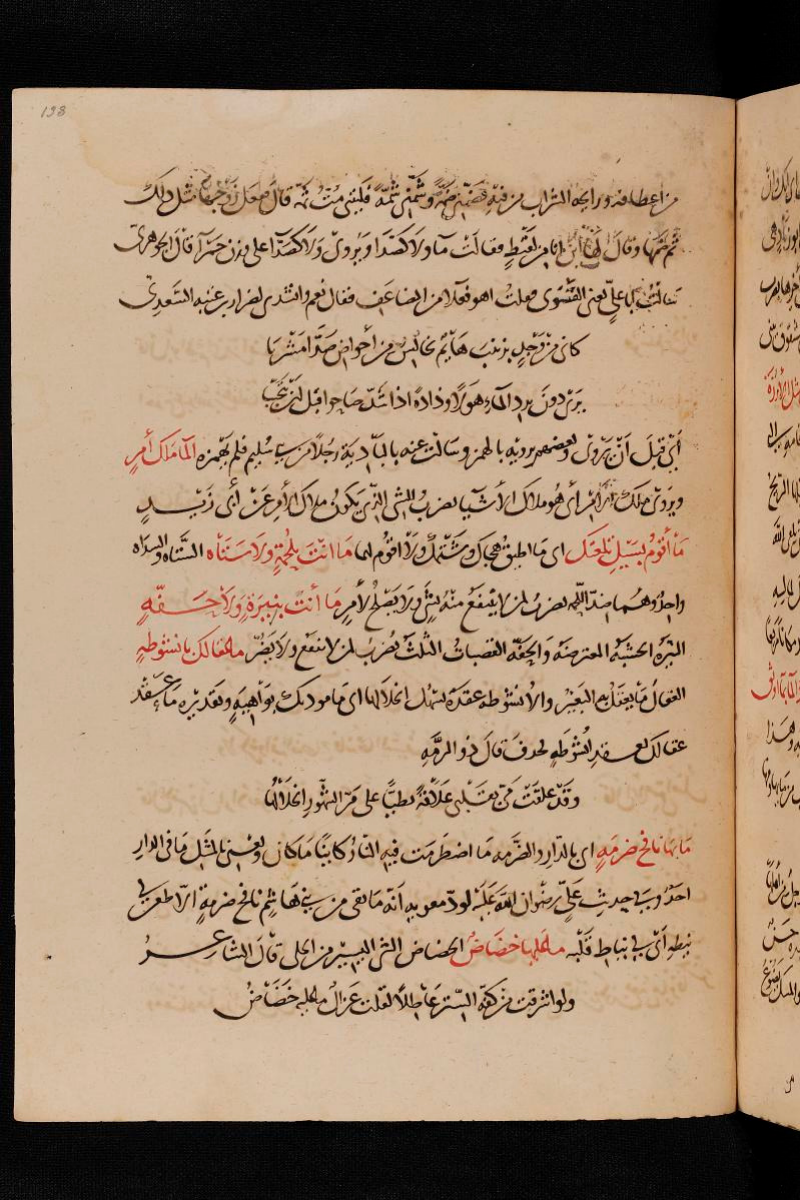 198
من اعطافه ورايحة الشراب من فيه فضمني ضمة وشمني شمة فليتني مت ثمة قال فجعل زوجها مثل ذلك
ثم ضمها وقال اين انا من لقيط فقالت ماء ولا كصداء ويروى ولا كصدآ على وزن حمرآ قال الجوهرى
سالت ابا على يعنى الفسوى فقلت اهو فعلاء من المضاعف فقال نعم وانشدنى لضرار بن عتبه السعدى
كانى من وجد بزينب هايم يخالس من احواض صدآ مشربا
يرى دون برد المآء هولا وذادة اذا شد صاحوا قبل ان يتحببا
أى قبل أن يروى وبعضهم يرويه بالهمز وسالت عنه بالبادية رجلا من بنى سليم فلم يهمزه الماء ملاك أمر
ويروى ملك الامر أى هو ملاك الاشيا يضرب للشى الذى يكون ملاك الامر عن أبى زيد
ما أقوم بسيل تلعتك اى ما اطيق هجاك وشتمك ولا اقوم لهما ما انت بلحمة ولا ستاه الستاه والسداه
واحد وهما ضد اللحمه يضرب لمن لا ينتفع منه بشى ولا يصلح لأمر ما أنت بنيرة ولا حفة
النيره الخشبه المعترضه والحفه القصبات الثلث يضرب لمن لا ينفع ولا يضر ما عقالك بانشوطه
العقال ما يعتقل به البعير والانشوطه عقدة يسهل انحلالها اى ما مودتك بواهية وتقديره ما عقد
عقالك بعقد انشوطة فحذف قال ذو الرمه
وقد علقت مى بقلبى علاقة بطيا على مر الشهور انحلالها
ما بها نافخ ضرمة اى بالدار والضرمه ما اضطرمت فيه النار كاينا ما كان ويعنى بالمثل ما فى الدار
احد وفى حديث على رضوان الله عليه لود معويه انه ما بقى من بنى هاشم نافخ ضرمة الا طعن فى
نيطه أى فى نياط قلبه ما عليها خضاض الخضاض الشى اليسير من الحلى قال الشاعر
ولو اشرقت من كفه الستر عاطلا لقلت غزال ما عليه خضاض